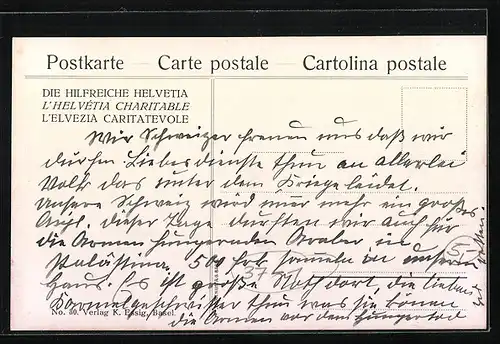 Postkarte — Carte postale — Cartolina postale
DIE HILFREICHE HELVETIA
L'HELVÉTIA CHARITABLE
L'ELVEZIA CARITATEVOLE
Wir Schweizer freuen uns daß wir
dürfen Liebesdienste thun an allerlei
Volk das unter dem Kriege leidet.
Unsere Schweiz wird nun mehr ein großes
Asyl. dieser Tage durften wir auch für
die Armen hungernden Araber in
Palästina 500 frb. sammeln in unserem
Haus. Es ist große Noth dort, die lieben
Karmelgeschwister thun was sie können
die Armen vor dem Hungertod
zu retten.
5.-
No. 80. Verlag K. Essig, Basel.